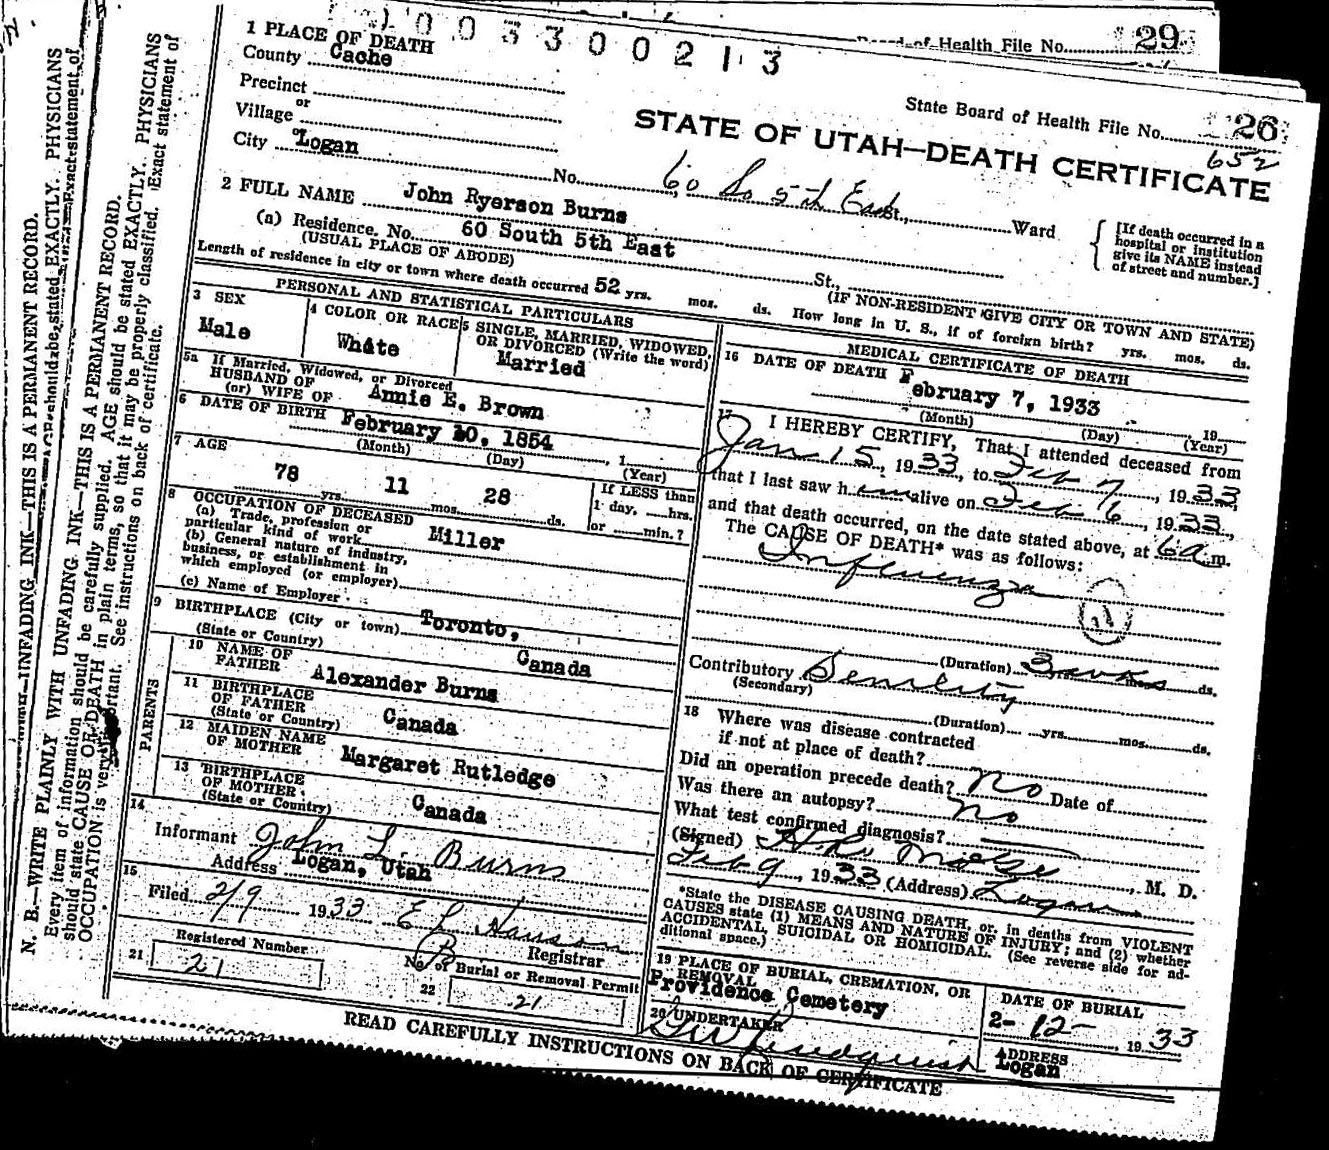 0 0 3 3 0 0 2 1 3
Board of Health File No. 29
State Board of Health File No. 26
652
STATE OF UTAH—DEATH CERTIFICATE
1 PLACE OF DEATH
County Cache
Precinct
or
Village
City Logan
No. 60 So 5th East St., Ward
[If death occurred in a
hospital or institution
give its NAME instead
of street and number.]
2 FULL NAME John Ryerson Burns
(a) Residence. No. 60 South 5th East St.,
(USUAL PLACE OF ABODE) (IF NON-RESIDENT GIVE CITY OR TOWN AND STATE)
Length of residence in city or town where death occurred 52 yrs. mos. ds. How long in U. S., if of foreign birth? yrs. mos. ds.
PERSONAL AND STATISTICAL PARTICULARS
3 SEX
Male
4 COLOR OR RACE
White
5 SINGLE, MARRIED, WIDOWED,
OR DIVORCED (Write the word)
Married
5a If Married, Widowed, or Divorced
HUSBAND OF
(or) WIFE OF Annie E. Brown
6 DATE OF BIRTH February 10, 1854, 1
(Month) (Day) (Year)
7 AGE
78 yrs. 11 mos. 28 ds.
If LESS than
1 day, hrs.
or min.?
8 OCCUPATION OF DECEASED
(a) Trade, profession or
particular kind of work Miller
(b) General nature of industry,
business, or establishment in
which employed (or employer)
(c) Name of Employer
9 BIRTHPLACE (City or town) Toronto,
(State or Country) Canada
PARENTS
10 NAME OF
FATHER Alexander Burns
11 BIRTHPLACE
OF FATHER
(State or Country) Canada
12 MAIDEN NAME
OF MOTHER Margaret Rutledge
13 BIRTHPLACE
OF MOTHER
(State or Country) Canada
14
Informant John L. Burns
Address Logan, Utah
15
Filed 2/9 1933 E L Hanson
Registrar
21 Registered Number
21
22 No. of Burial or Removal Permit
21
MEDICAL CERTIFICATE OF DEATH
16 DATE OF DEATH February 7, 1933 19
(Month) (Day) (Year)
17 I HEREBY CERTIFY, That I attended deceased from
Jan 15, 1933, to Feb 7, 1933,
that I last saw him alive on Feb 6, 1933,
and that death occurred, on the date stated above, at 6 a m.
The CAUSE OF DEATH* was as follows:
Influenza
11
(Duration) 3 wks mos. ds.
Contributory Senility
(Secondary)
(Duration) yrs. mos. ds.
18 Where was disease contracted
if not at place of death?
Did an operation precede death? No Date of
Was there an autopsy? No
What test confirmed diagnosis?
(Signed) M. D.
Feb 9, 1933 (Address) Logan
*State the DISEASE CAUSING DEATH, or, in deaths from VIOLENT
CAUSES state (1) MEANS AND NATURE OF INJURY; and (2) whether
ACCIDENTAL, SUICIDAL OR HOMICIDAL. (See reverse side for ad-
ditional space.)
19 PLACE OF BURIAL, CREMATION, OR
REMOVAL
Providence Cemetery
DATE OF BURIAL
2-12- 1933
20 UNDERTAKER
ADDRESS
Logan
READ CAREFULLY INSTRUCTIONS ON BACK OF CERTIFICATE
N. B.—WRITE PLAINLY WITH UNFADING INK—THIS IS A PERMANENT RECORD.
Every item of information should be carefully supplied. AGE should be stated EXACTLY. PHYSICIANS
should state CAUSE OF DEATH in plain terms, so that it may be properly classified. Exact statement of
OCCUPATION is very important. See instructions on back of certificate.